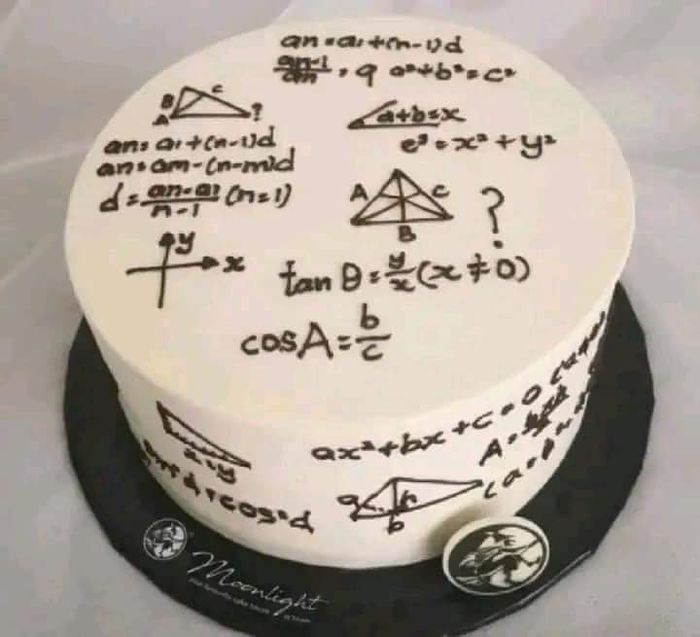 an = a1 + (n-1)d
an-1/an = q a² + b² = c²
B C
A ?
a+b=x
an = a1 + (n-1)d
e² = x² + y²
an = am - (n-m)d
d = an-a1/n-1 (n=1)
A C ?
B
y
x
tan θ = y/x (x ≠ 0)
cosA = b/c
ax² + bx + c = 0
x = y
cos²d
a h
b
A =
Moonlight